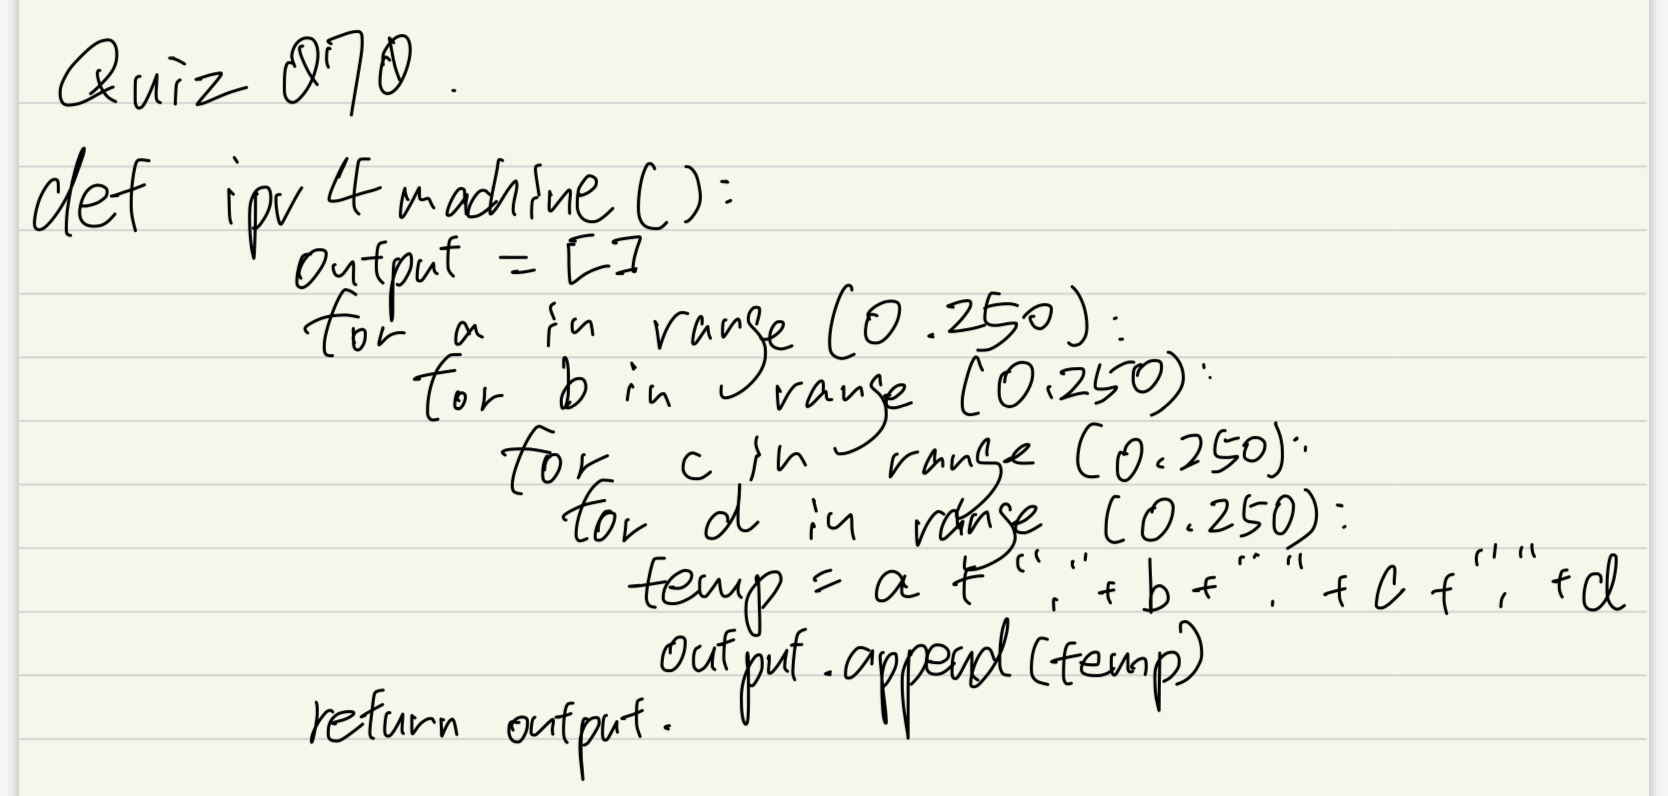 Quiz 070.
def ipv4machine():
output = []
for a in range (0.250):
for b in range (0.250):
for c in range (0.250):
for d in range (0.250):
temp = a + "." + b + "." + c + "." + d
output.append(temp)
return output.